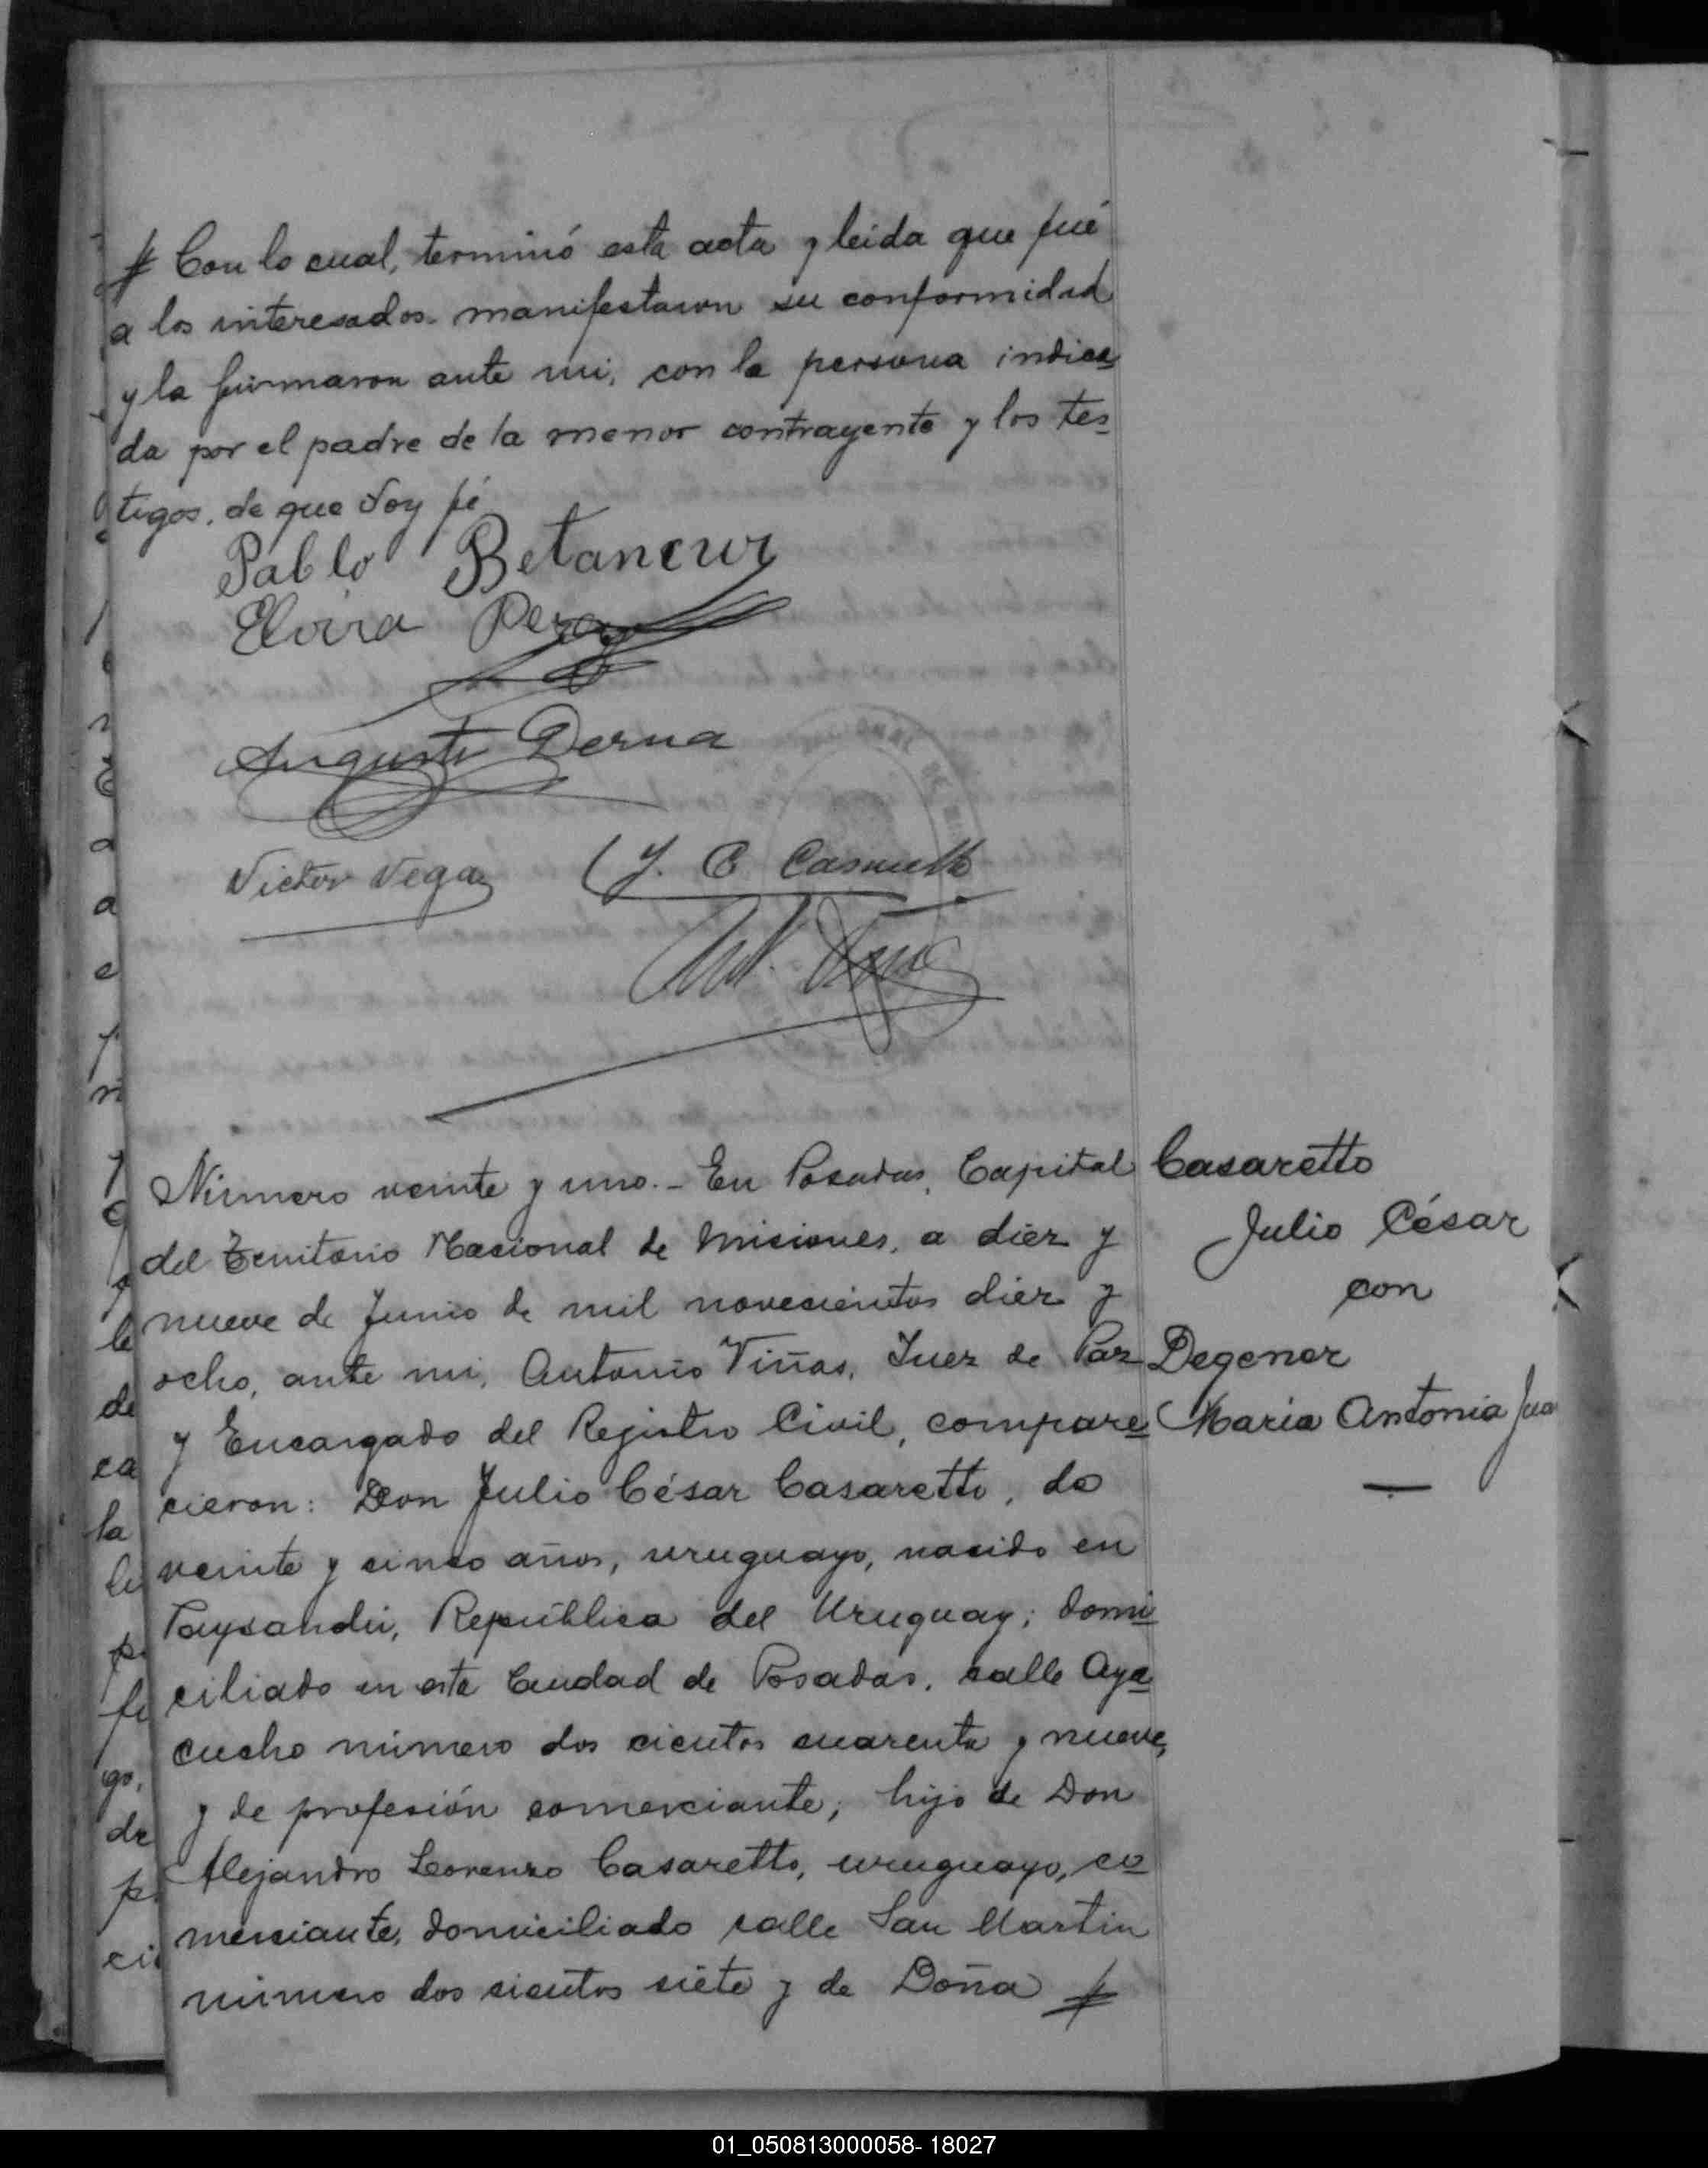 Con lo cual, terminó esta acta y leida que fué
a los interesados manifestaron su conformidad
y la firmaron ante mi, con la persona indica
da por el padre de la menor contrayente y los tes
tigos, de que doy fé
Pablo Betancur
Elvira
Augusto Derna
Victor Vega
J. C.
Número veinte y uno.- En Posadas, Capital
del Territorio Nacional de Misiones, a diez y
nueve de Junio de mil novecientos diez y
ocho, ante mi, Antonio Viñas, Juez de Paz
y Encargado del Registro Civil, compare
cieron: Don Julio César Casaretto, de
veinte y cinco años, uruguayo, nacido en
Paysandú, República del Uruguay; domi
ciliado en esta Ciudad de Posadas, calle Aya
cucho número dos cientos cuarenta y nueve,
y de profesión comerciante; hijo de Don
Alejandro Lorenzo Casaretto, uruguayo, co
merciante, domiciliado calle San Martin
número dos cientos siete y de Doña
Casaretto
Julio César
con
Degener
Maria Antonia Jua
01_050813000058- 18027